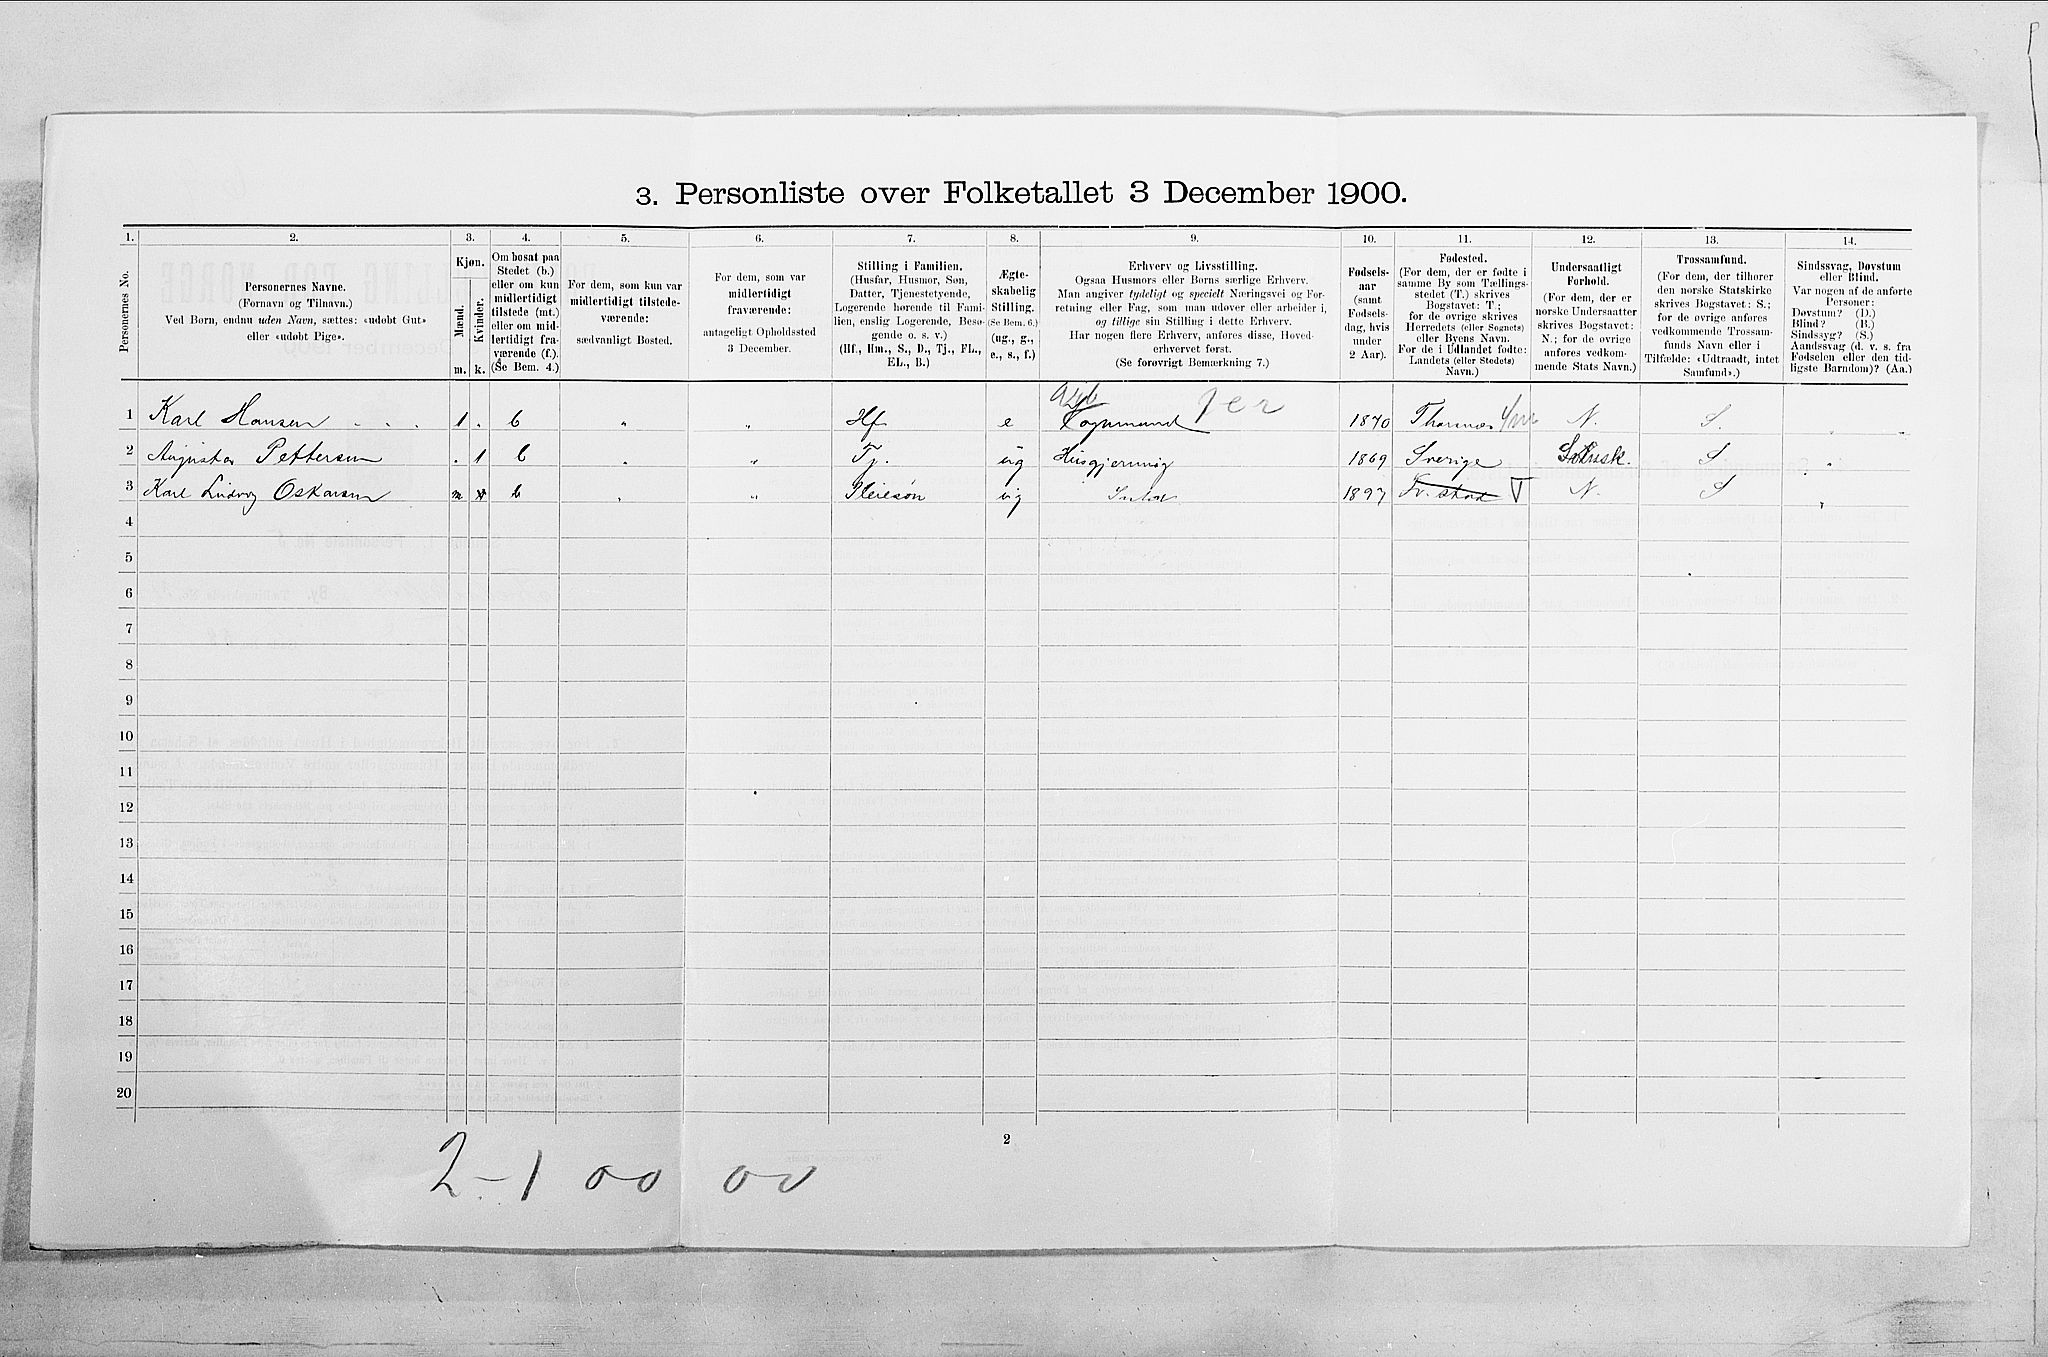 3. Personliste over Folketallet 3 December 1900.
1. 2. 3. 4. 5. 6. 7. 8. 9. 10. 11. 12. 13. 14.
Personernes No.
Personernes Navne.
(Fornavn og Tilnavn.)
Ved Børn, endnu uden Navn, sættes: «udøbt Gut»
eller «udøbt Pige».
Kjøn.
Mænd.
Kvinder.
m. k.
Om bosat paa
Stedet (b.)
eller om kun
midlertidigt
tilstede (mt.)
eller om mid-
lertidigt fra-
værende (f.).
(Se Bem. 4.)
For dem, som kun var
midlertidigt tilstede-
værende:
sædvanligt Bosted.
For dem, som var
midlertidigt
fraværende:
antageligt Opholdssted
3 December.
Stilling i Familien.
(Husfar, Husmor, Søn,
Datter, Tjenestetyende,
Logerende hørende til Fami-
lien, enslig Logerende, Besø-
gende o. s. v.)
(Hf., Hm., S., D., Tj., FL.,
EL., B.)
Ægte-
skabelig
Stilling.
(Se Bem. 6.)
(ug., g.,
e., s., f.)
Erhverv og Livsstilling.
Ogsaa Husmors eller Børns særlige Erhverv.
Man angiver tydeligt og specielt Næringsvei og For-
retning eller Fag, som man udøver eller arbeider i,
og tillige sin Stilling i dette Erhverv.
Har nogen flere Erhverv, anføres disse, Hoved-
erhvervet først.
(Se forøvrigt Bemærkning 7.)
Fødsels-
aar
(samt
Fødsels-
dag, hvis
under
2 Aar).
Fødested.
(For dem, der er fødte i
samme By som Tællings-
stedet (T.) skrives
Bogstavet: T;
for de øvrige skrives
Herredets (eller Sognets)
eller Byens Navn.
For de i Udlandet fødte:
Landets (eller Stedets)
Navn.)
Undersaatligt
Forhold.
(For dem, der er
norske Undersaatter
skrives Bogstavet:
N.; for de øvrige
anføres vedkom-
mende Stats Navn.)
Trossamfund.
(For dem, der tilhører
den norske Statskirke
skrives Bogstavet: S.;
for de øvrige anføres
vedkommende Trossam-
funds Navn eller i
Tilfælde: «Udtraadt, intet
Samfund».)
Sindssvag, Døvstum
eller Blind.
Var nogen af de anførte
Personer:
Døvstum? (D.)
Blind? (B.)
Sindssyg? (S.)
Aandssvag (d. v. s. fra
Fødselen eller den tid-
ligste Barndom)? (Aa.)
1 Karl Hansen 1 . b " " Hf e 1870 N. S.
2 Augusta Pettersen . 1 b " " Tj. ug Husgjerning 1869 Sverige Svensk. S "
3 Karl Ludvig Oskarsen m b " " Pleiesøn ug 1897 Fr.stad T N. S "
4
5
6
7
8
9
10
11
12
13
14
15
16
17
18
19
20
2
2-1 00 00